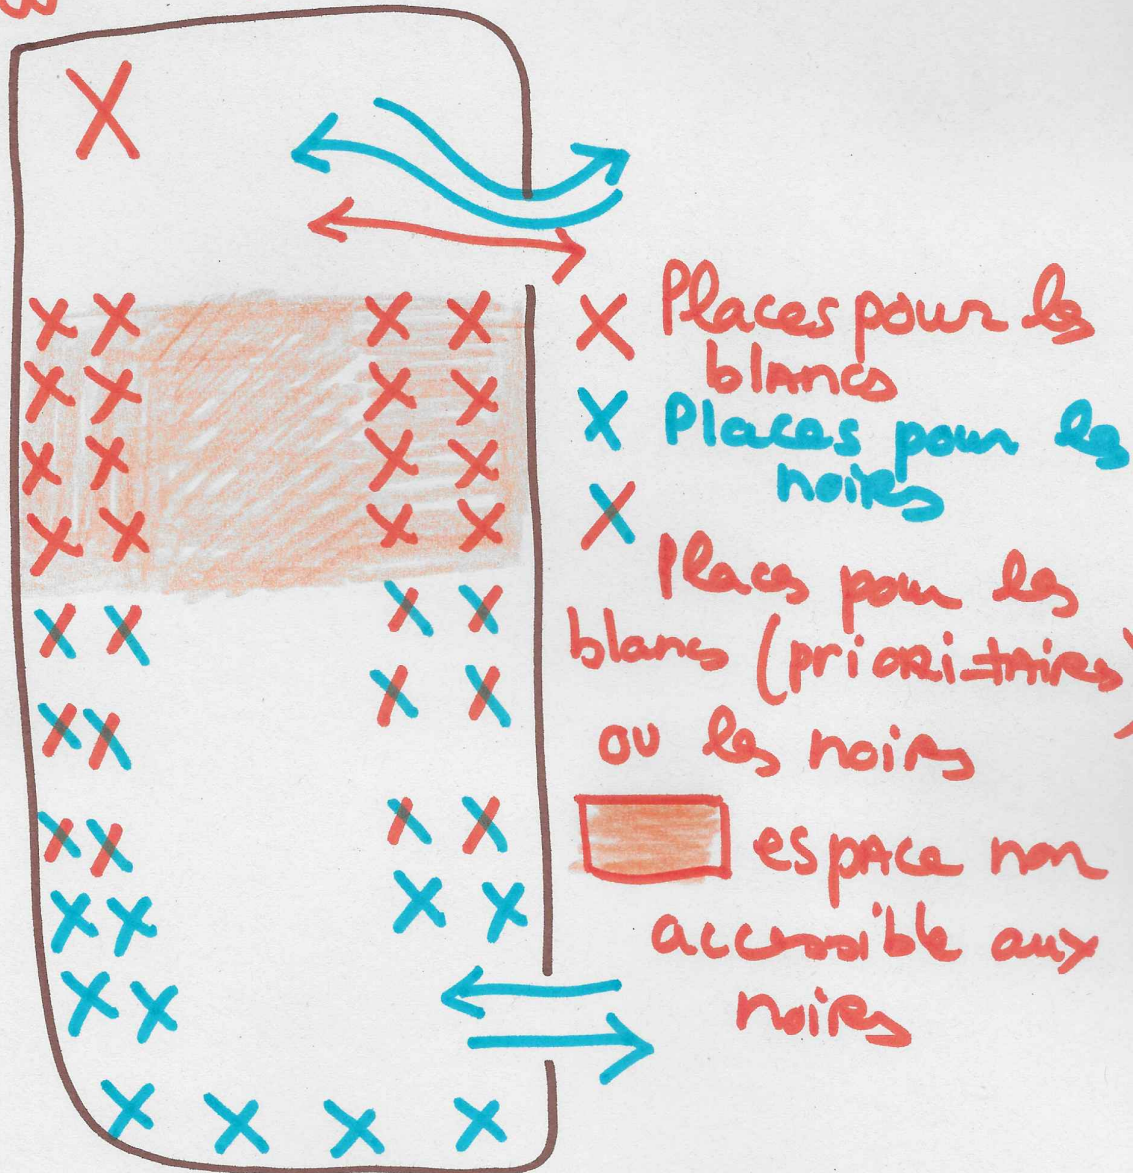 Places pour les
blancs
Places pour les
noirs
Places pour les
blancs (prioritaires)
ou les noirs
espace non
accessible aux
noirs